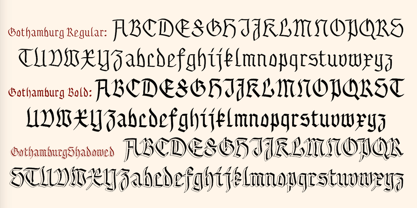 Gothamburg Regular: ABCDEFGHIJKLMNOPQRS
TUVWXYZabcdefghijklmnopqrstuvwxyz
Gothamburg Bold: ABCDEFGHIJKLMNOPQRST
UVWXYZabcdefghijklmnopqrstuvwxyz
GothamburgShadowed ABCDEFGHIJKLMNOPQR
STUVWXYZabcdefghijklmnopqrstuvwxyz